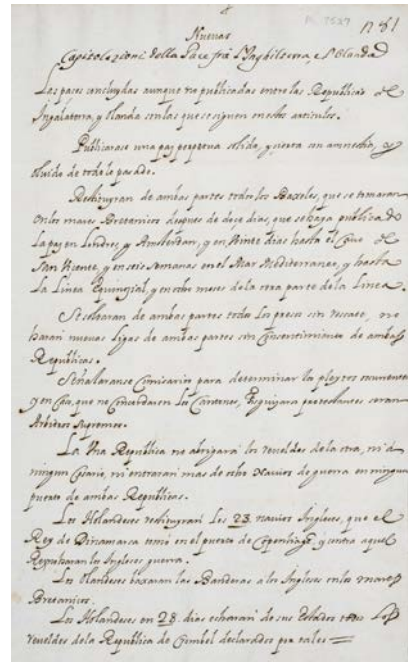 8
n 81
Nuevas
Capitolazioni della Pace frà l'Inghilterra, e l'Olanda
Las pases concluydas aunque no publicadas entre las Republicas de
Ingalaterra, y Olanda son las que se siguen en estos articulos.
Publicarase una paz perpetua solida, y cierta con amnestia, y
oluido de todo lo pasado.
Restituyran de ambas partes todos los Baxeles, que se tomaran
en los mares Bretanicos despues de doçe dias, que se haya publicado
la paz en Londres, y Amsterdam, y en veinte dias hasta el Cauo de
San Vicente, y en seis semanas en el Mar Mediterraneo, y hasta
la Linea Equinozial, y en ocho meses de la otra parte de la Linea.
Se soltaran de ambas partes todos los presos sin rescate, no
haran nuevas Ligas de ambas partes sin Consentimiento de ambas
Republicas.
Señalaranse Comisarios para determinar los pleytos
y en caso, que no Concordaren los Cantones, Esquizaros protestantes seran
Arbitros Supremos.
La Una Republica no abrigará los reueldes de la otra, ni à
ningun Cosario, ni entraran mas de ocho Navios de guerra en ningun
puerto de ambas Republicas.
Los Holandeses restituyran Los 23. navios Ingleses, que el
Rey de Dinamarca tomó en el puerto de y contra aquel
Rey los Ingleses guerra.
Los Olandeses baxaran las Banderas a los Ingleses en los mares
Bretanicos.
Los Holandeses en 28. dias echaran de sus Estados todos Los
reueldes de la Republica de declarados por tales